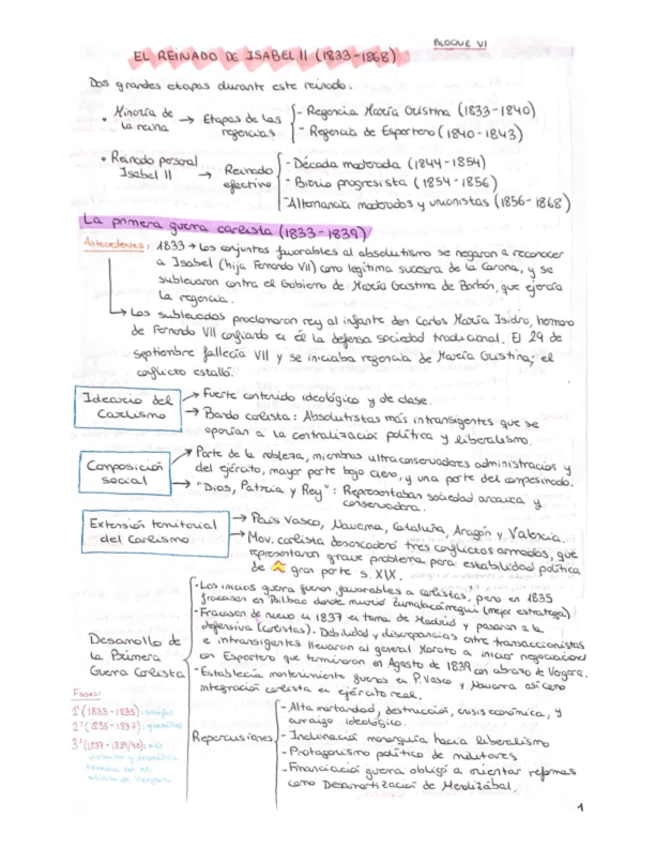 BLOQUE VI
EL REINADO DE ISABEL II (1833-1868)
Dos grandes etapas durante este reinado:
• Minoría de la reina → Etapas de las regencias
- Regencia María Cristina (1833-1840)
- Regencia de Espartero (1840-1843)
• Reinado personal Isabel II → Reinado efectivo
- Década moderada (1844-1854)
- Bienio progresista (1854-1856)
- Alternancia moderados y unionistas (1856-1868)
La primera guerra carlista (1833-1839)
Antecedentes: 1833 → Los conjuntos favorables al absolutismo se negaron a reconocer
a Isabel (hija Fernando VII) como legítima sucesora de la Corona, y se
sublevaron contra el Gobierno de María Cristina de Borbón, que ejercía
la regencia.
→ Los sublevados proclamaron rey al infante don Carlos María Isidro, hermano
de Fernando VII confiando en él la defensa sociedad tradicional. El 29 de
septiembre fallecía VII y se iniciaba regencia de María Cristina; el
conflicto estalló.
Ideario del Carlismo
→ Fuerte contenido ideológico y de clase.
→ Bando carlista: Absolutistas más intransigentes que se
oponían a la centralización política y liberalismo.
Composición social
→ Parte de la nobleza, miembros ultraconservadores administración y
del ejército, mayor parte bajo clero, y una parte del campesinado.
→ "Dios, Patria y Rey": Representaban sociedad arcaica y
conservadora.
Extensión territorial del Carlismo
→ País Vasco, Navarra, Cataluña, Aragón y Valencia.
→ Mov. carlista desencadenó tres conflictos armados, que
representaron grave problema para estabilidad política
de gran parte s. XIX.
Desarrollo de la Primera Guerra Carlista
- Los inicios guerra fueron favorables a carlistas, pero en 1835
fracasan en Bilbao donde murió Zumalacárregui (mejor estratega)
- Fracasan de nuevo en 1837 en toma de Madrid y pasaron a la
defensiva (carlistas). Debilidad y discrepancias entre transaccionistas
e intransigentes llevaron al general Maroto a iniciar negociaciones
con Espartero que terminaron en Agosto de 1839 con abrazo de Vergara.
- Establecía mantenimiento fueros en P. Vasco y Navarra así como
integración carlista en ejército real.
Fases:
1ª (1833-1835):
2ª (1836-1837):
3ª (1837-1839/40): más
termina con el
abrazo de Vergara
Repercusiones
- Alta mortandad, destrucción, crisis económica, y
arraigo ideológico.
- Inclinación monarquía hacia liberalismo
- Protagonismo político de militares
- Financiación guerra obligó a orientar reformas
como Desamortización de Mendizábal.
1